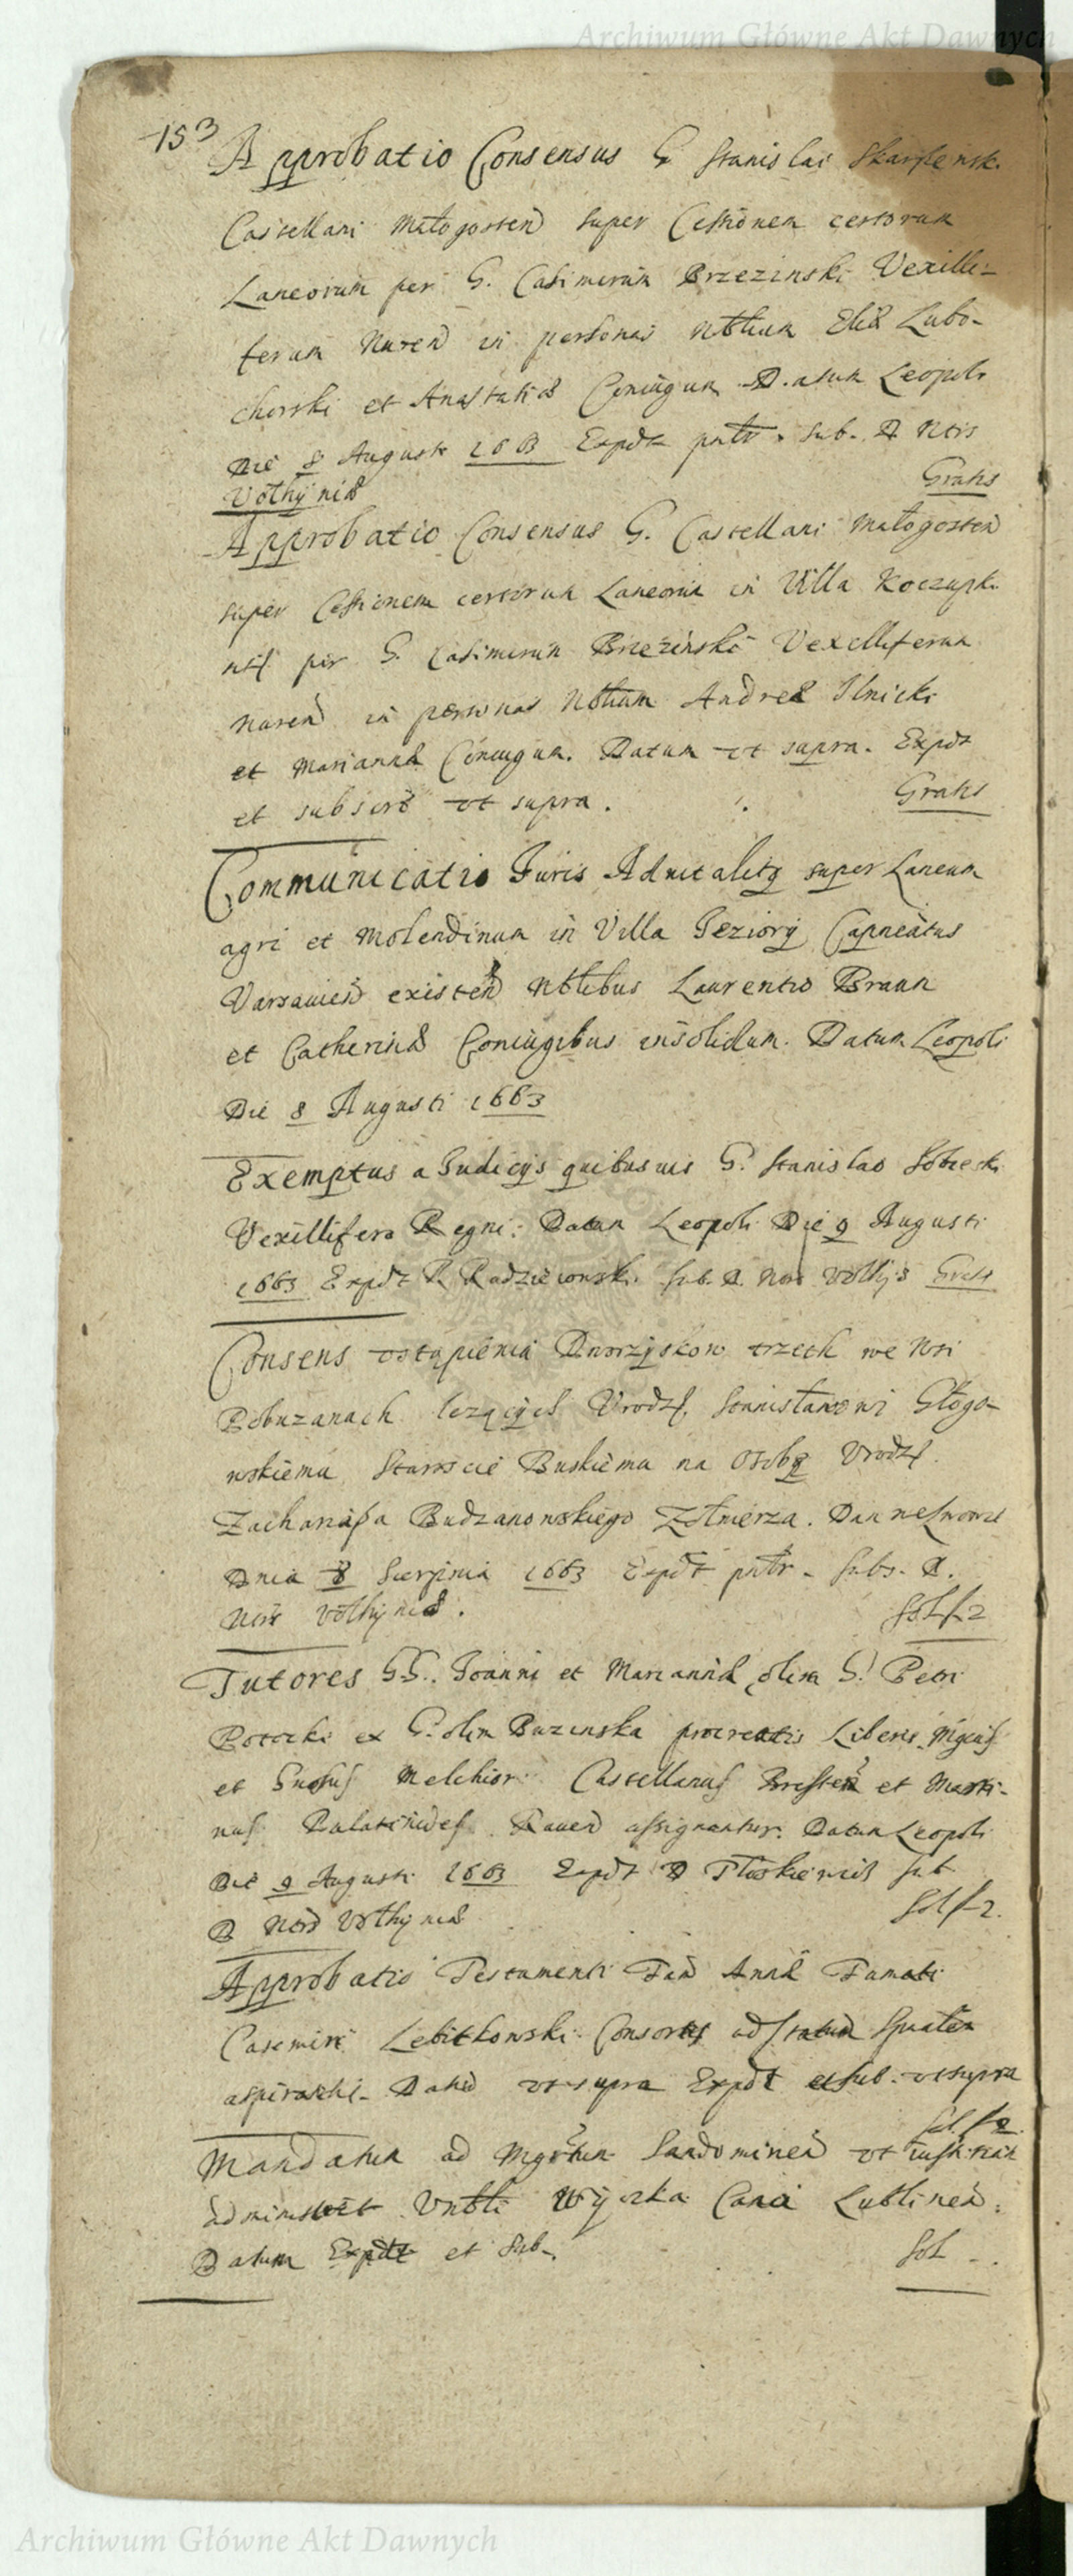 Archiwum Główne Akt Dawnych
153
Approbatio Consensus G Stanislai Skarszewsk.
Castellani Małogosten super Cessionem certorum
Laneorum per G. Casimirum Brzezinski Vexilli-
ferum Nuren in personas Nbilium Eliæ Lubo-
chorski et Anastasiæ Coniugum. Datum Leopoli
Die 8 Augusti 1663 Expdt pntr. Sub. D Ntris
Vołhyniæ Gratis
Approbatio Consensus G. Castellani Małogosten
super Cessionem certorum Laneorum in Villa Koczupk.
per G. Casimirum Brzezinski Vexilliferum
Nuren in personas Nbilium Andreæ Ilnicki
et Mariannæ Coniugum. Datum vt supra. Expdt
et subscrib vt supra. Gratis
Communicatio Juris Aduitalitij super Laneum
agri et Molendinum in Villa Jeziory Capneatus
Varsauien existen Nblibus Laurentio Braun
et Catherinæ Coniugibus insolidum. Datum Leopoli
Die 8 Augusti 1663
Exemptus a Judicijs quibusuis G. Stanislao Sobieski
Vexillifero Regni. Datum Leopoli Die 9 Augusti
1663 Expdt R Radzieiowski. Sub. D. Nors Vołhy Gratis
Consens vstąpienia Dworzyskow trzech we Wsi
Pobuzanach lezących Vrodz. Stanisławowi Głogo-
wskiemu Staroscie Buskiemu na Osobę Vrodz.
Zachariasza Budzanowskiego Zołnierza. Dan we Lwowie
Dnia 8 Sierpnia 1663 Expdt pntr. Subs. D.
Nors Vołhyniæ. Sol f 2
Tutores GG. Joanni et Mariannæ olim G. Petri
Potocki ex G. olim Buzenska procreatis Liberis Mgcus
et Gnosus Melchior Castellanus Bresten et Marti-
nus Palatinides Rauen assignantur. Datum Leopoli
Die 9 Augusti 1663 Expdt D Sub
D Nors Vołhyniæ Sol f 2.
Approbatio Testamenti Fam Annæ Famati
Casimiri Lebitkowski Consortis ad Statum Spualem
aspirantis. Datum vt supra Expdt et sub. vt supra
Sol f 2.
Mandatum ad Mgrtum Sandomirien vt iustitiam
administret Lublinen.
Datum Expdt et Sub. Sol
Archiwum Główne Akt Dawnych